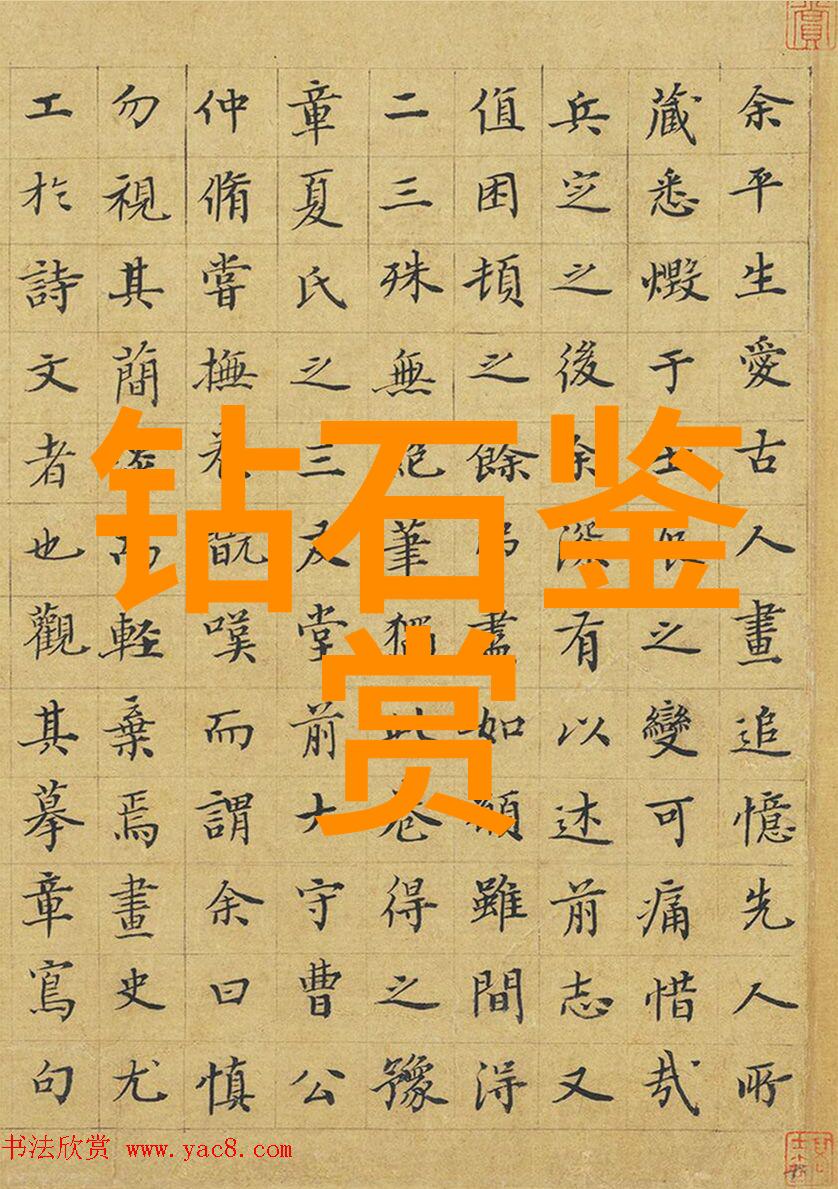 余平生愛古人畫追憶先人所
藏悉燬于之變可痛惜哉
兵定之後余深有以述前志又
值困頓之餘盡如願雖間得
二三殊無絕筆獨此卷得之豫
章夏氏之三友堂前大守曹公
仲脩嘗撫卷既嘆而謂余曰慎
勿視其簡淡而輕棄焉畫史尤
工於詩文者也觀其摹章寫句
钻石鉴
赏
书法欣赏 www.yac8.com